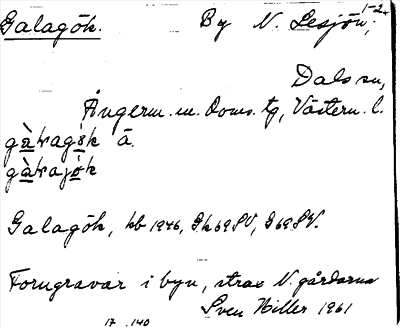 Galagök. By N. Lesjön, 1-2.
Dals sn,
Ångerm. m. Doms. tg, Västern. l.
gàƚragök ä.
gàƚrajók
Galagök, kb 1946, Gk 69 SV, G 69 SV.
Forngravar i byn, strax N. gårdarna
Sven Hiller 1961
17 140